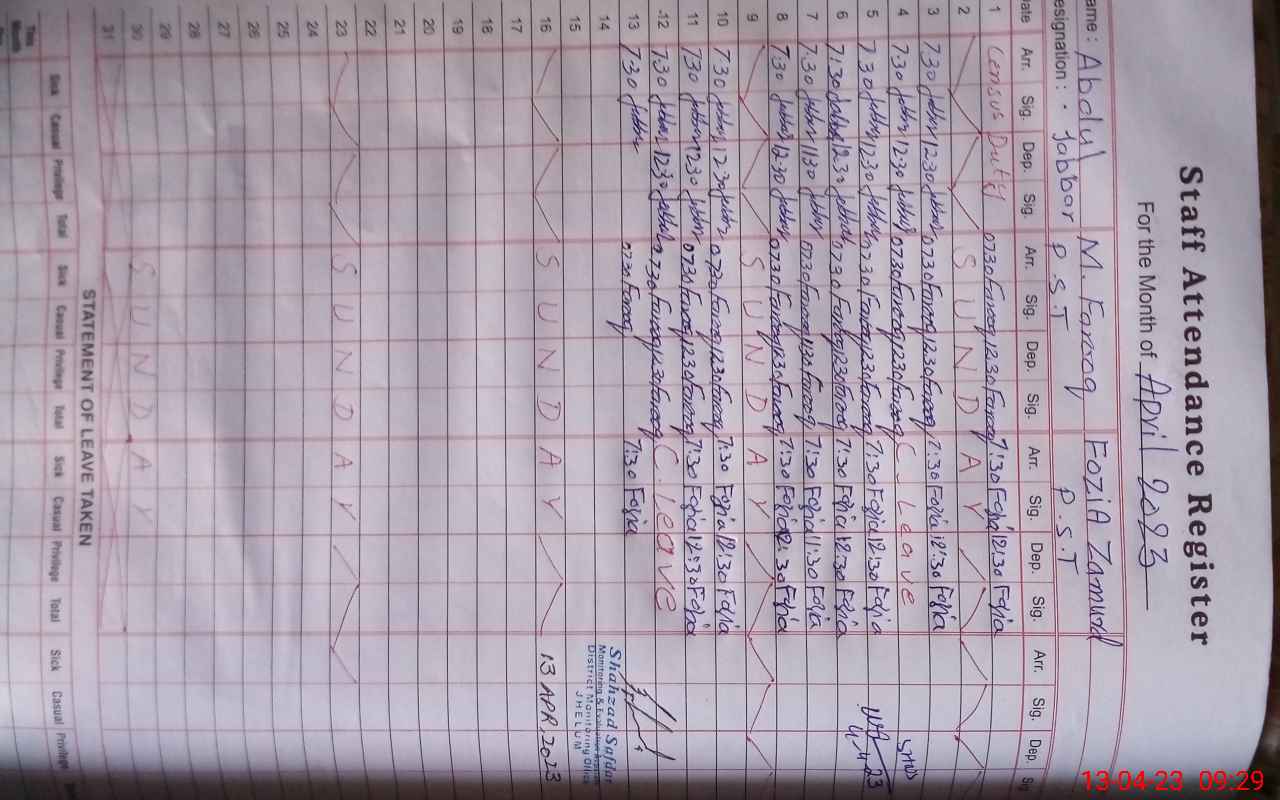 Staff Attendance Register
For the Month of April 2023
ame: Abdul Jabbar M. Farooq FoziA Zamurd
esignation: P.S.T P.S.T
ate Arr. Sig. Dep. Sig. Arr. Sig. Dep. Sig. Arr. Sig. Dep. Sig. Arr. Sig. Dep. Sig
1 Census Duty 0730 Farooq 12:30 Farooq 7:30 Fozia 12:30 Fozia
2 S U N D A Y
3 7:30 Jabbar 12:30 Jabbar 0730 Farooq 1230 Farooq 7:30 Fozia 12:30 Fozia
4 7:30 Jabbar 12:30 Jabbar 0730 Farooq 1230 Farooq C. Leave
5 7:30 Jabbar 12:30 Jabbar 0730 Farooq 1230 Farooq 7:30 Fozia 12:30 Fozia 4.4.23
6 7:30 Jabbar 12:30 Jabbar 0730 Farooq 1230 Farooq 7:30 Fozia 12:30 Fozia
7 7:30 Jabbar 11:30 Jabbar 0730 Farooq 1130 Farooq 7:30 Fozia 11:30 Fozia
8 7:30 Jabbar 12:30 Jabbar 0730 Farooq 1230 Farooq 7:30 Fozia 12:30 Fozia
9 S U N D A Y
10 7:30 Jabbar 12:30 Jabbar 0730 Farooq 1230 Farooq 7:30 Fozia 12:30 Fozia
11 7:30 Jabbar 12:30 Jabbar 0730 Farooq 1230 Farooq 7:30 Fozia 12:30 Fozia
12 7:30 Jabbar 12:30 Jabbar 0730 Farooq 1230 Farooq C. Leave
13 7:30 Jabbar 0730 Farooq 7:30 Fozia
Shahzad Safdar
Monitoring & Evaluation
14 District Monitoring Office
15 JHELUM
16 S U N D A Y 13 APR, 2023
17
18
19
20
21
22
23 S U N D A Y
24
25
26
27
28
29
30 S U N D A Y
31
STATEMENT OF LEAVE TAKEN
Sick Casual Privilege Total Sick Casual Privilege Total Sick Casual Privilege Total Sick Casual Privilege
This Month
13-04-23 09:29